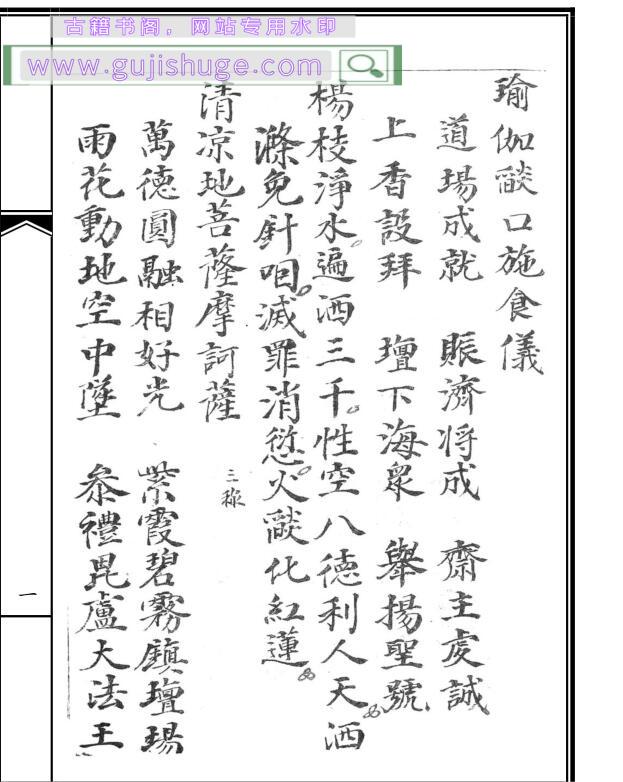 古籍书阁，网站专用水印
www.gujishuge.com
瑜伽燄口施食儀
道場成就 賑濟将成 齋主虔誠
上香設拜 壇下海衆 舉揚聖號
楊枝淨水遍洒三千性空八德利人天洒
滌免針咽滅罪消愆火燄化紅蓮
清凉地菩薩摩訶薩 三称
萬德圓融相好光 紫霞碧霧鎮壇場
雨花動地空中墜 叅禮毘盧大法王
一